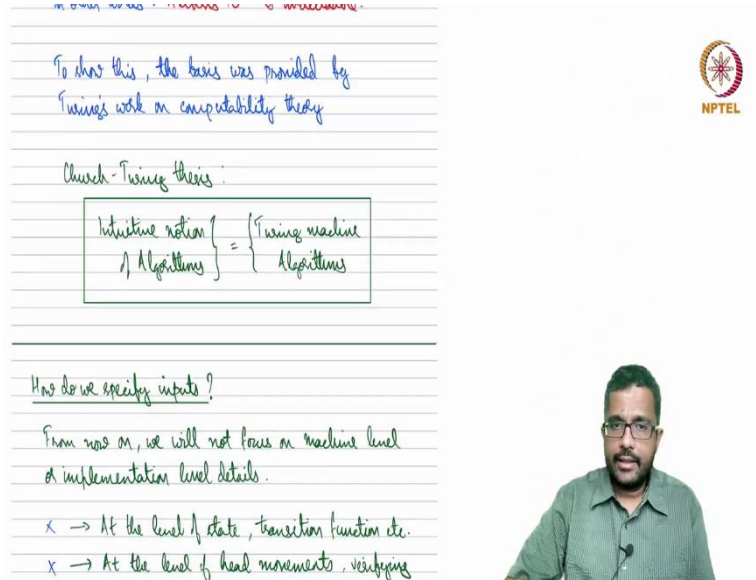 To show this, the basis was provided by
Turing's work on computability theory
NPTEL
Church-Turing thesis :
Intuitive notion } = { Turing machine
of Algorithms Algorithms
How do we specify inputs ?
From now on, we will not focus on machine level
or implementation level details.
x → At the level of state, transition function etc.
x → At the level of head movements, verifying